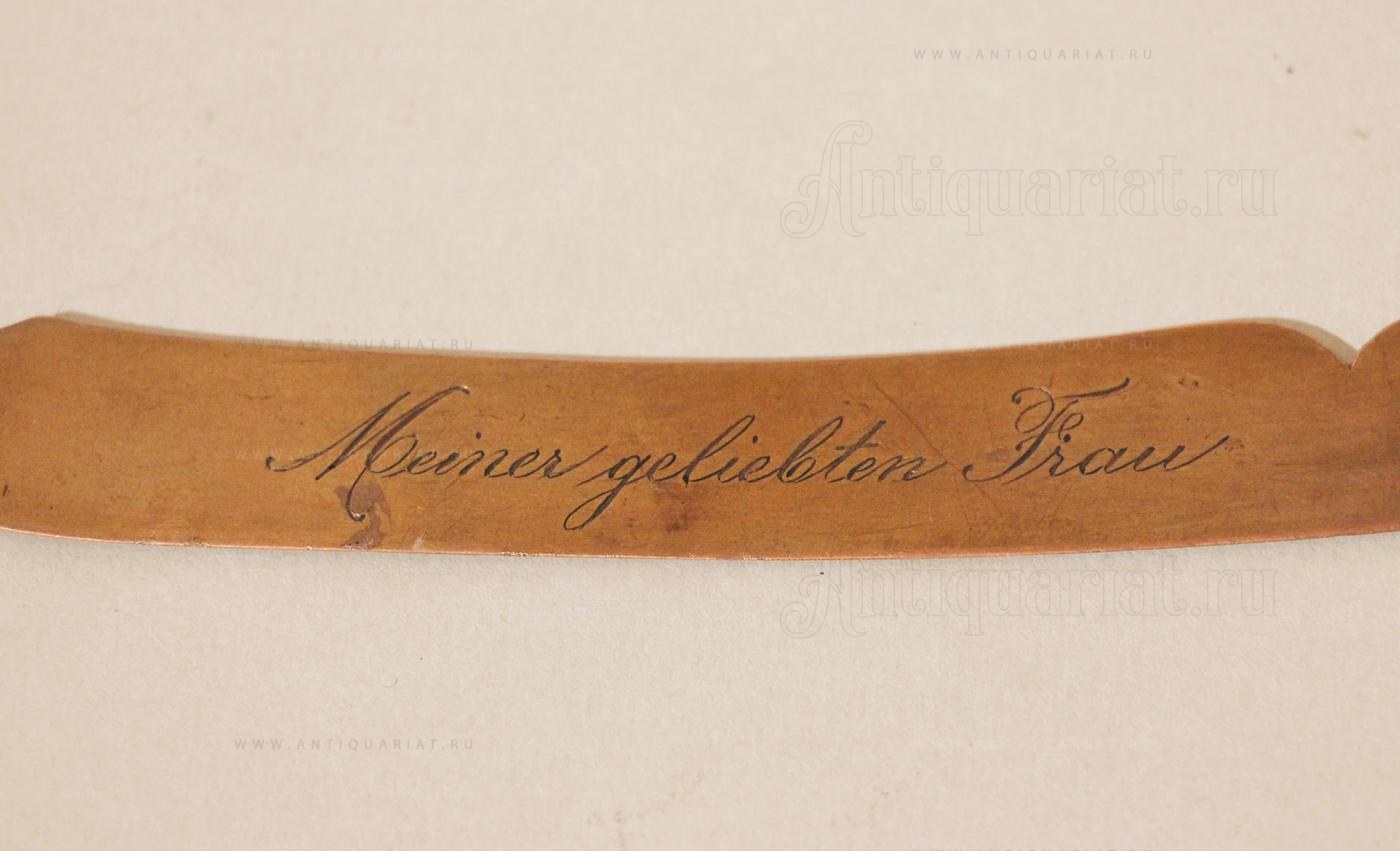 WWW.ANTIQUARIAT.RU WWW.ANTIQUARIAT.RU
Antiquariat.ru
WWW.ANTIQUARIAT.RU WWW.ANTIQUARIAT.RU
Meiner geliebten Frau
Antiquariat.ru
WWW.ANTIQUARIAT.RU